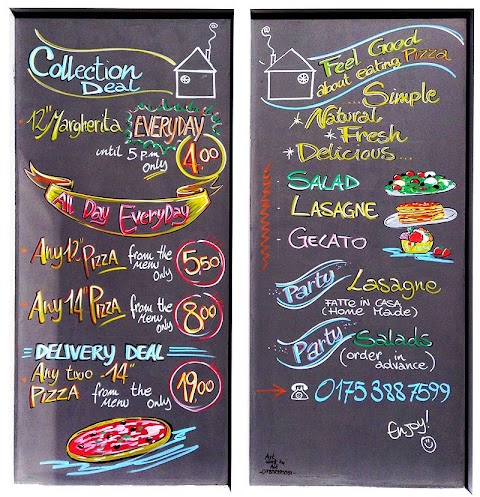 Collection
Deal
12" Margherita EVERYDAY
until 5 p.m
only 4.00
All Day Everyday
Any 12" Pizza from the
menu
only 5,50
Any 14" Pizza from the
menu
only 8,00
DELIVERY DEAL
Any two - 14"
Pizza from the
menu only 19,00
Feel Good
about eating Pizza
...Simple
*Natural
*Fresh
*Delicious...
SALAD
LASAGNE
GELATO
Party Lasagne
FATTE IN CASA
(Home Made)
Party Salads
(order in
advance)
0175 388 7599
Enjoy!
Art